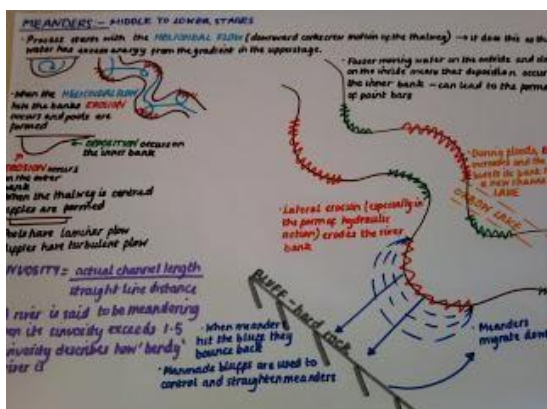 MEANDERS - MIDDLE TO LOWER STAGES
· Process starts with the HELICOIDAL FLOW (downward corkscrew motion of the thalweg) → it does this as the
water has excess energy from the gradient in the upperstage.
· When the HELICOIDAL FLOW
hits the banks EROSION
occurs and pools are
formed
DEPOSITION occurs on
the inner bank
EROSION occurs
on the outer
bank
When the thalweg is centred
riffles are formed
Pools have laminar flow
Riffles have turbulent flow
SINUOSITY = actual channel length
straight line distance
A river is said to be meandering
when its sinuosity exceeds 1.5
Sinuosity describes how 'bendy'
river is
· Faster moving water on the outside and
on the inside means that deposition occurs
the inner bank - can lead to the
of point bars
· During floods,
increases and the
bursts its bank
a new channel
OXBOW LAKE
LAKE
· Lateral erosion (especially in
the form of hydraulic
action) erodes the river
bank
BLUFF - hard rock
· When meander
hit the bluff they
bounce back
· Manmade bluffs are used to
control and straighten meanders
· Meanders
migrate